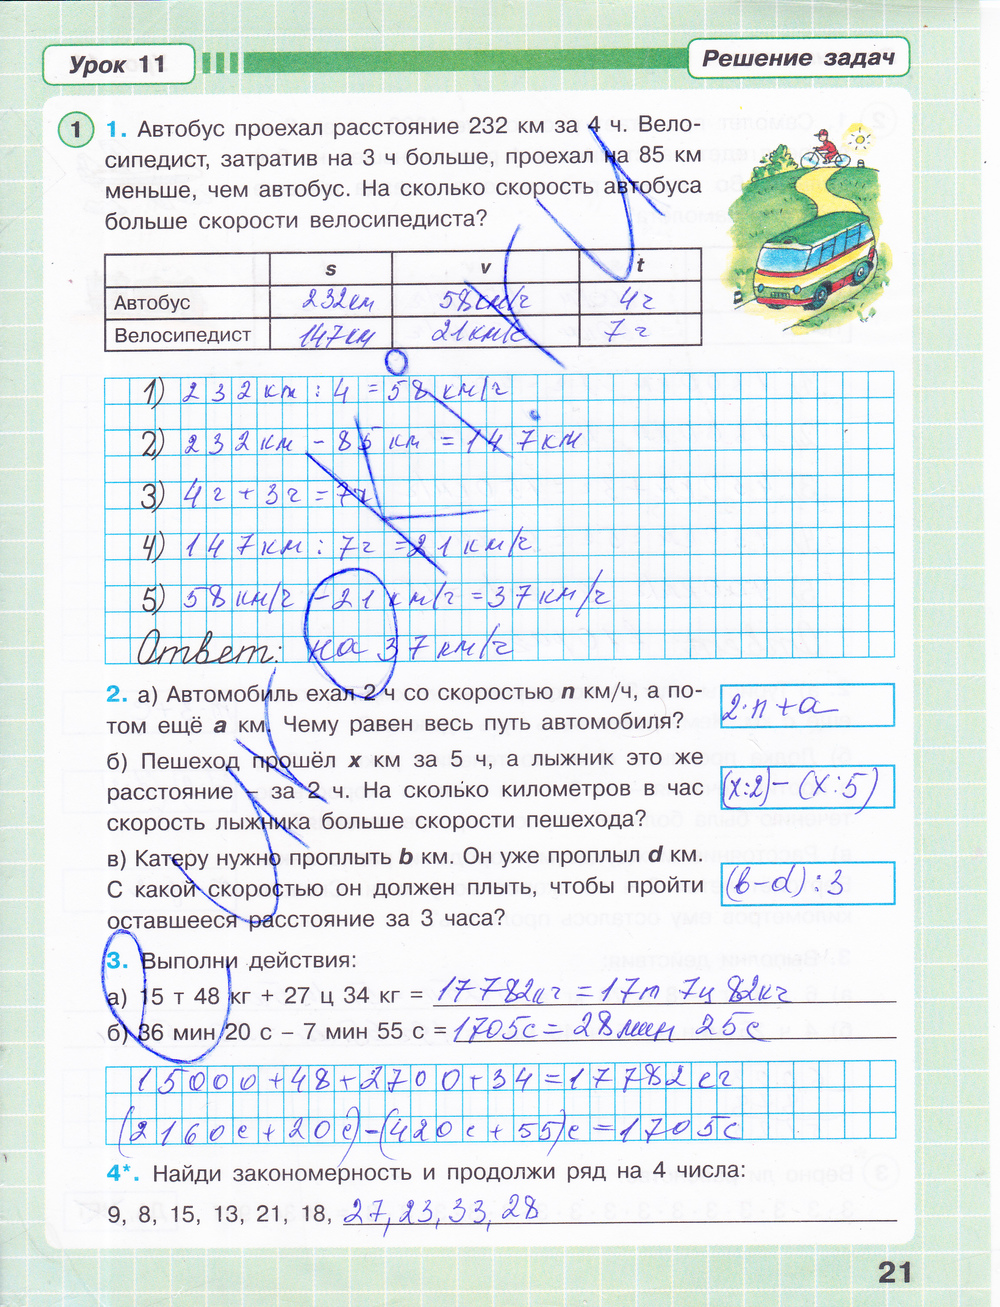 Урок 11
Решение задач
1 1. Автобус проехал расстояние 232 км за 4 ч. Вело-
сипедист, затратив на 3 ч больше, проехал на 85 км
меньше, чем автобус. На сколько скорость автобуса
больше скорости велосипедиста?
s v t
Автобус 232км 58км/ч 4ч
Велосипедист 147км 21км/ч 7 ч
1) 232 км : 4 = 58 км/ч
2) 232 км - 85 км = 147 км
3) 4ч + 3ч = 7ч
4) 147 км : 7ч = 21 км/ч
5) 58 км/ч - 21 км/ч = 37 км/ч
Ответ: на 37 км/ч
2. а) Автомобиль ехал 2 ч со скоростью n км/ч, а по-
том ещё a км. Чему равен весь путь автомобиля?
2·n+a
б) Пешеход прошёл x км за 5 ч, а лыжник это же
расстояние – за 2 ч. На сколько километров в час
скорость лыжника больше скорости пешехода?
(x:2)-(x:5)
в) Катеру нужно проплыть b км. Он уже проплыл d км.
С какой скоростью он должен плыть, чтобы пройти
оставшееся расстояние за 3 часа?
(b-d):3
3. Выполни действия:
а) 15 т 48 кг + 27 ц 34 кг = 17782кг = 17т 7ц 82кг
б) 36 мин 20 с – 7 мин 55 с = 1705с = 28мин 25с
15000+48+2700+34=17782 кг
(2160с+20с)-(420с+55)с=1705с
4*. Найди закономерность и продолжи ряд на 4 числа:
9, 8, 15, 13, 21, 18, 27, 23, 33, 28
21